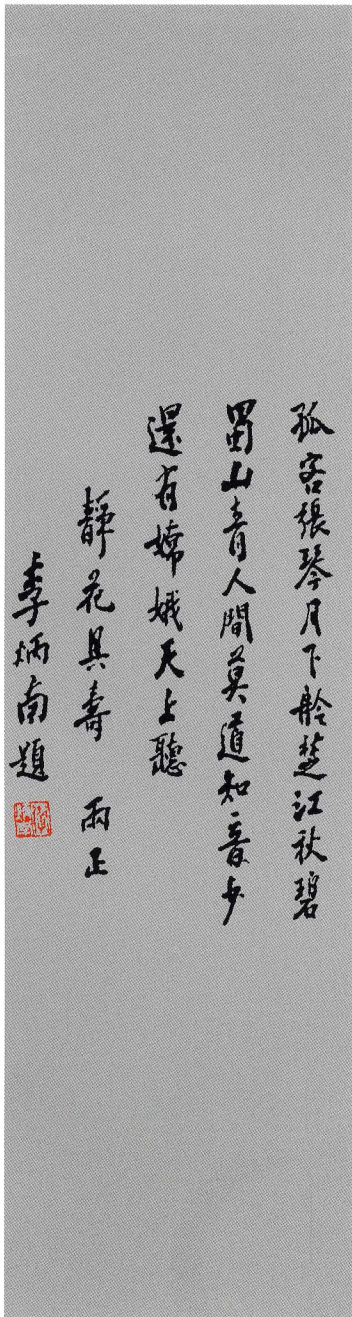 孤客張琴月下舲楚江秋碧
蜀山青人間莫道知音少
還有嫦娥天上聽
靜花具壽 兩正
李炳南題